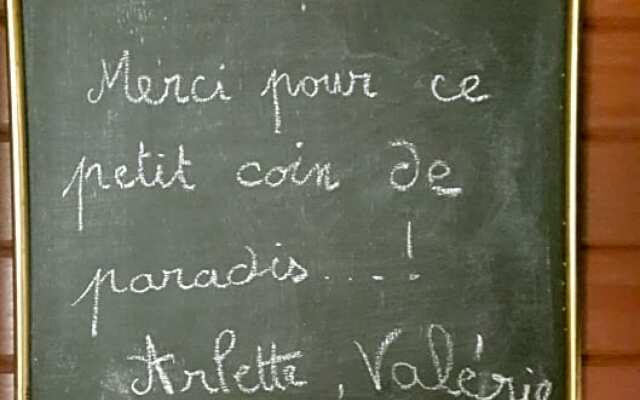 Merci pour ce
petit coin de
paradis...!
Arlette, Valérie